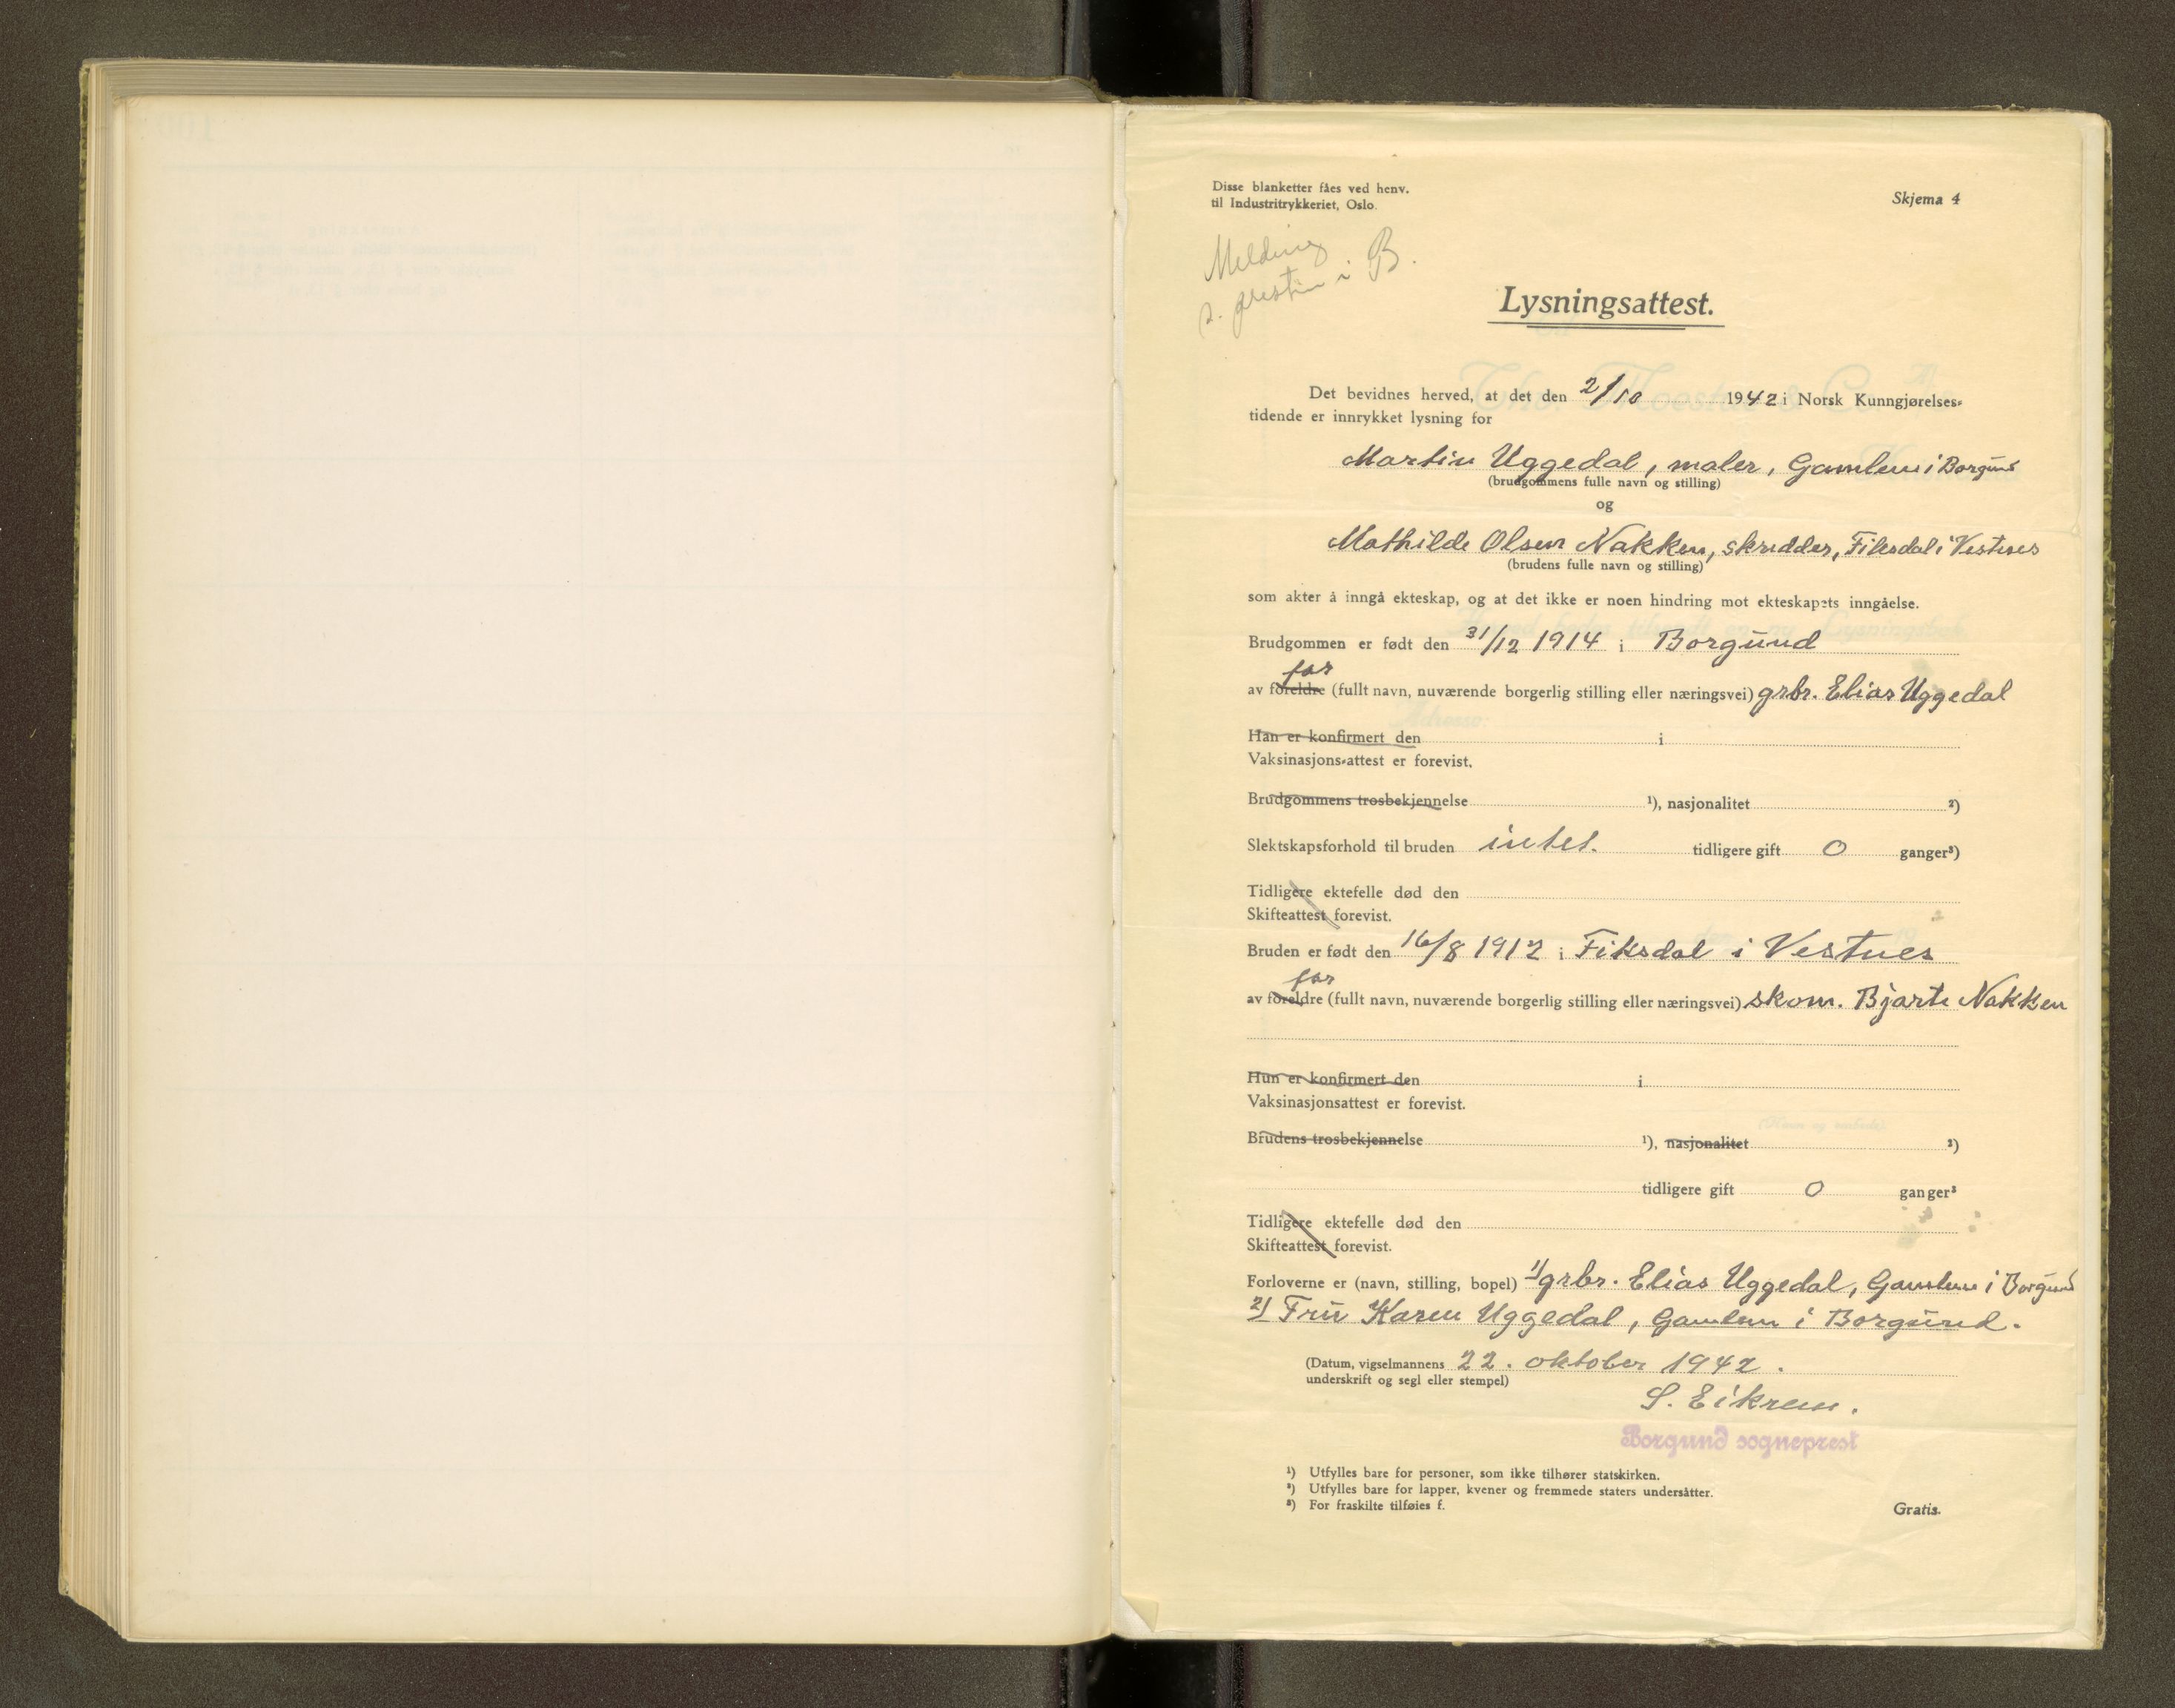 Disse blanketter fåes ved henv.
til Industritrykkeriet, Oslo.
Skjema 4
Melding
s. presten i B.
Lysningsattest.
Det bevidnes herved, at det den 2/10 1942 i Norsk Kunngjørelses-
tidende er innrykket lysning for
Martin Uggedal, maler, Gamlem i Borgund
(brudgommens fulle navn og stilling)
og
Mathilde Olsen Nakken, skredder, Fiksdal i Vestnes
(brudens fulle navn og stilling)
som akter å inngå ekteskap, og at det ikke er noen hindring mot ekteskapets inngåelse.
Brudgommen er født den 31/12 1914 i Borgund
far
av foreldre (fullt navn, nuværende borgerlig stilling eller næringsvei) grbr. Elias Uggedal
Han er konfirmert den i
Vaksinasjons-attest er forevist.
Brudgommens trosbekjennelse ¹), nasjonalitet ²)
Slektskapsforhold til bruden intet. tidligere gift 0 ganger³)
Tidligere ektefelle død den
Skifteattest forevist.
Bruden er født den 16/8 1912 i Fiksdal i Vestnes
far
av foreldre (fullt navn, nuværende borgerlig stilling eller næringsvei) skom. Bjarte Nakken
Hun er konfirmert den i
Vaksinasjonsattest er forevist.
Brudens trosbekjennelse ¹), nasjonalitet ²)
tidligere gift 0 ganger³
Tidligere ektefelle død den
Skifteattest forevist.
Forloverne er (navn, stilling, bopel) 1) grbr. Elias Uggedal, Gamlem i Borgund
2) Fru Karen Uggedal, Gamlem i Borgund.
(Datum, vigselmannens 22. oktober 1942.
underskrift og segl eller stempel)
S. Eikrem.
Borgund sogneprest
¹) Utfylles bare for personer, som ikke tilhører statskirken.
²) Utfylles bare for lapper, kvener og fremmede staters undersåtter.
³) For fraskilte tilføies f.
Gratis.